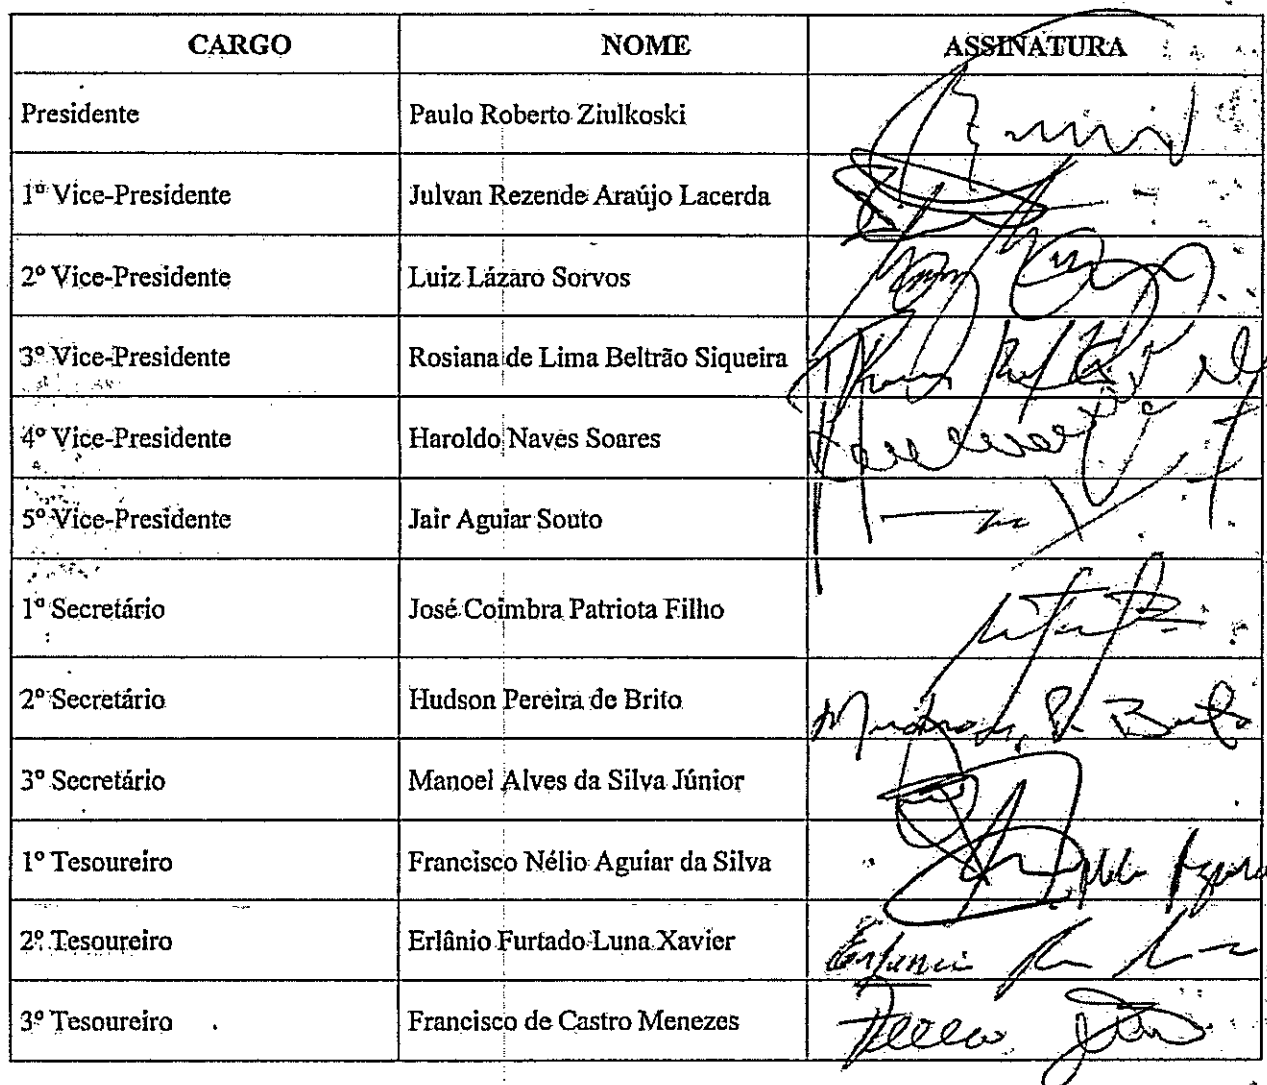 CARGO NOME ASSINATURA
Presidente Paulo Roberto Ziulkoski
1º Vice-Presidente Julvan Rezende Araújo Lacerda
2º Vice-Presidente Luiz Lázaro Sorvos
3º Vice-Presidente Rosiana de Lima Beltrão Siqueira
4º Vice-Presidente Haroldo Naves Soares
5º Vice-Presidente Jair Aguiar Souto
1º Secretário José Coimbra Patriota Filho
2º Secretário Hudson Pereira de Brito
3º Secretário Manoel Alves da Silva Júnior
1º Tesoureiro Francisco Nélio Aguiar da Silva
2º Tesoureiro Erlânio Furtado Luna Xavier
3º Tesoureiro Francisco de Castro Menezes